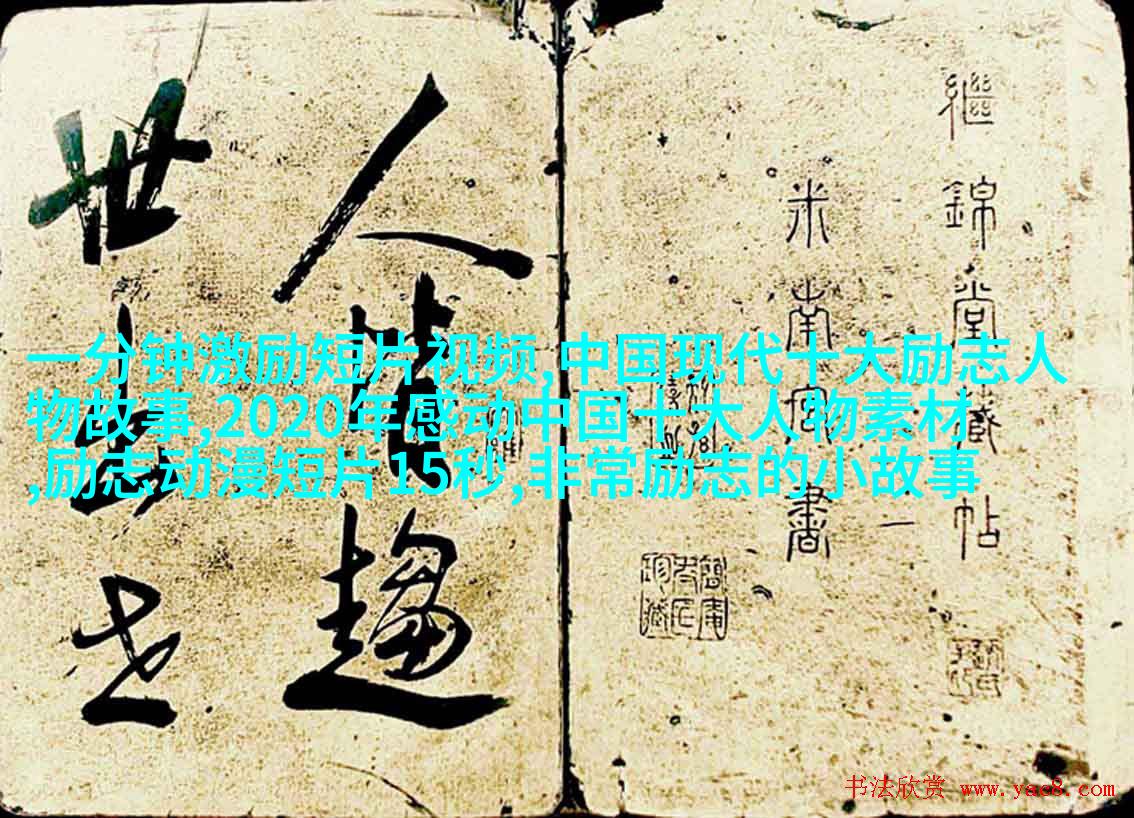 一分钟激励短片视频,中国现代十大励志人
物故事,2020年感动中国十大人物素材
,励志动漫短片15秒,非常励志的小故事
繼錦堂藏帖
米南宮書
一
人
趨
世
书法欣赏 www.yac8.com